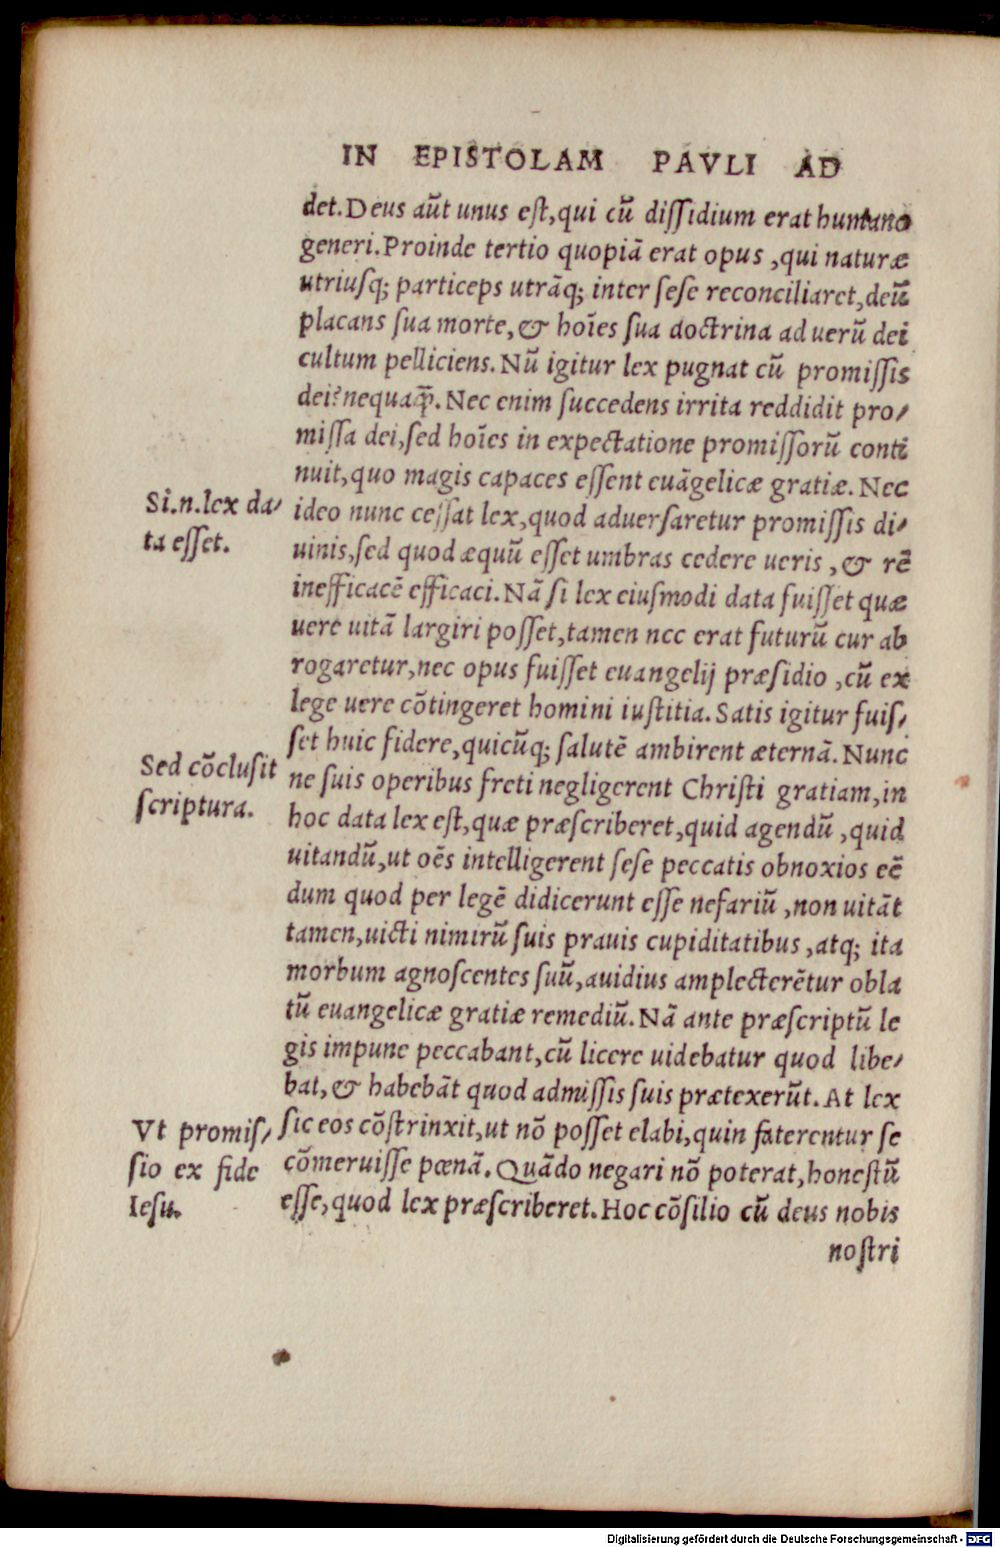 IN EPISTOLAM PAVLI AD
det. Deus aũt unus eſt, qui cũ diſſidium erat humano
generi. Proinde tertio quopiã erat opus, qui naturæ
utriusq; particeps utrãq; inter ſeſe reconciliaret, deũ
placans ſua morte, & hoĩes ſua doctrina ad uerũ dei
cultum pelliciens. Nũ igitur lex pugnat cũ promiſſis
dei? nequaq̃. Nec enim ſuccedens irrita reddidit pro-
miſſa dei, ſed hoĩes in expectatione promiſſorũ conti
nuit, quo magis capaces eſſent euãgelicæ gratiæ. Nec
Si.n.lex da-
ta eſſet.
ideo nunc ceſſat lex, quod aduerſaretur promiſſis di-
uinis, ſed quod æquũ eſſet umbras cedere ueris, & rẽ
inefficacẽ efficaci. Nã ſi lex eiuſmodi data fuiſſet quæ
uere uitã largiri poſſet, tamen nec erat futurũ cur ab
rogaretur, nec opus fuiſſet euangelij præſidio, cũ ex
lege uere cõtingeret homini iuſtitia. Satis igitur fuiſ-
ſet huic fidere, quicũq; ſalutẽ ambirent æternã. Nunc
Sed cõcluſit
ſcriptura.
ne ſuis operibus freti negligerent Chriſti gratiam, in
hoc data lex eſt, quæ præſcriberet, quid agendũ, quid
uitandũ, ut oẽs intelligerent ſeſe peccatis obnoxios eẽ
dum quod per legẽ didicerunt eſſe nefariũ, non uitãt
tamen, uicti nimirũ ſuis prauis cupiditatibus, atq; ita
morbum agnoſcentes ſuũ, auidius amplecterẽtur obla
tũ euangelicæ gratiæ remediũ. Nã ante præſcriptũ le
gis impune peccabant, cũ licere uidebatur quod libe-
bat, & habebãt quod admiſſis ſuis prætexerũt. At lex
Vt promiſ-
ſio ex fide
Ieſu.
ſic eos cõſtrinxit, ut nõ poſſet elabi, quin faterentur ſe
cõmeruiſſe pœnã. Quãdo negari nõ poterat, honeſtũ
eſſe, quod lex præſcriberet. Hoc cõſilio cũ deus nobis
noſtri
Digitalisierung gefördert durch die Deutsche Forschungsgemeinschaft - DFG